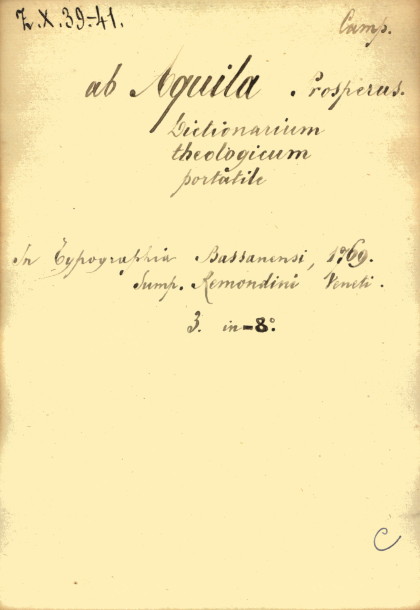 Z.X.39-41.
Camp.
ab Aquila Prosperus.
Dictionarium
theologicum
portàtile
In Typographia Bassanensi, 1769.
Sump. Remondini Veneti.
3. in-8º.
C